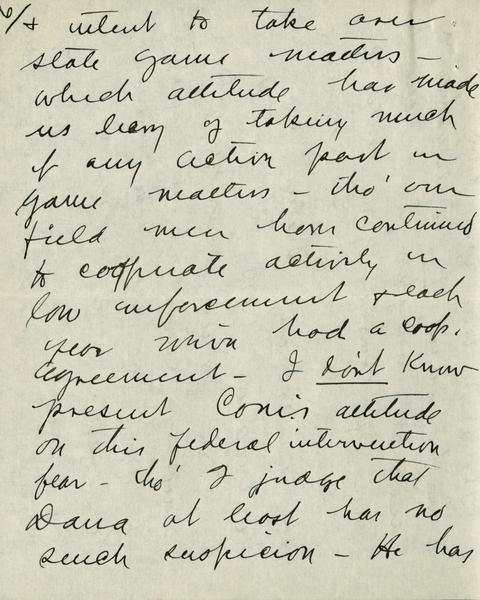 6/ & intent to take over
state game matters –
which attitude has made
us leary of taking much
if any action part in
game matters – tho' our
field men have continued
to cooperate actively in
law enforcement & each
year have had a coop.
agreement – I don't know
present Com's attitude
on this federal intervention
fear – tho' I judge that
Dana at least has no
such suspicion – He has